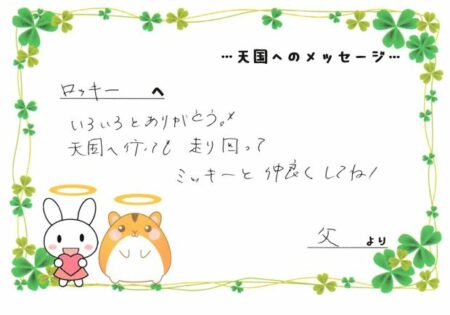 …天国へのメッセージ…
ロッキー へ
いろいろとありがとう。
天国へ行っても 走り回って
ミッキーと仲良くしてね!
父 より